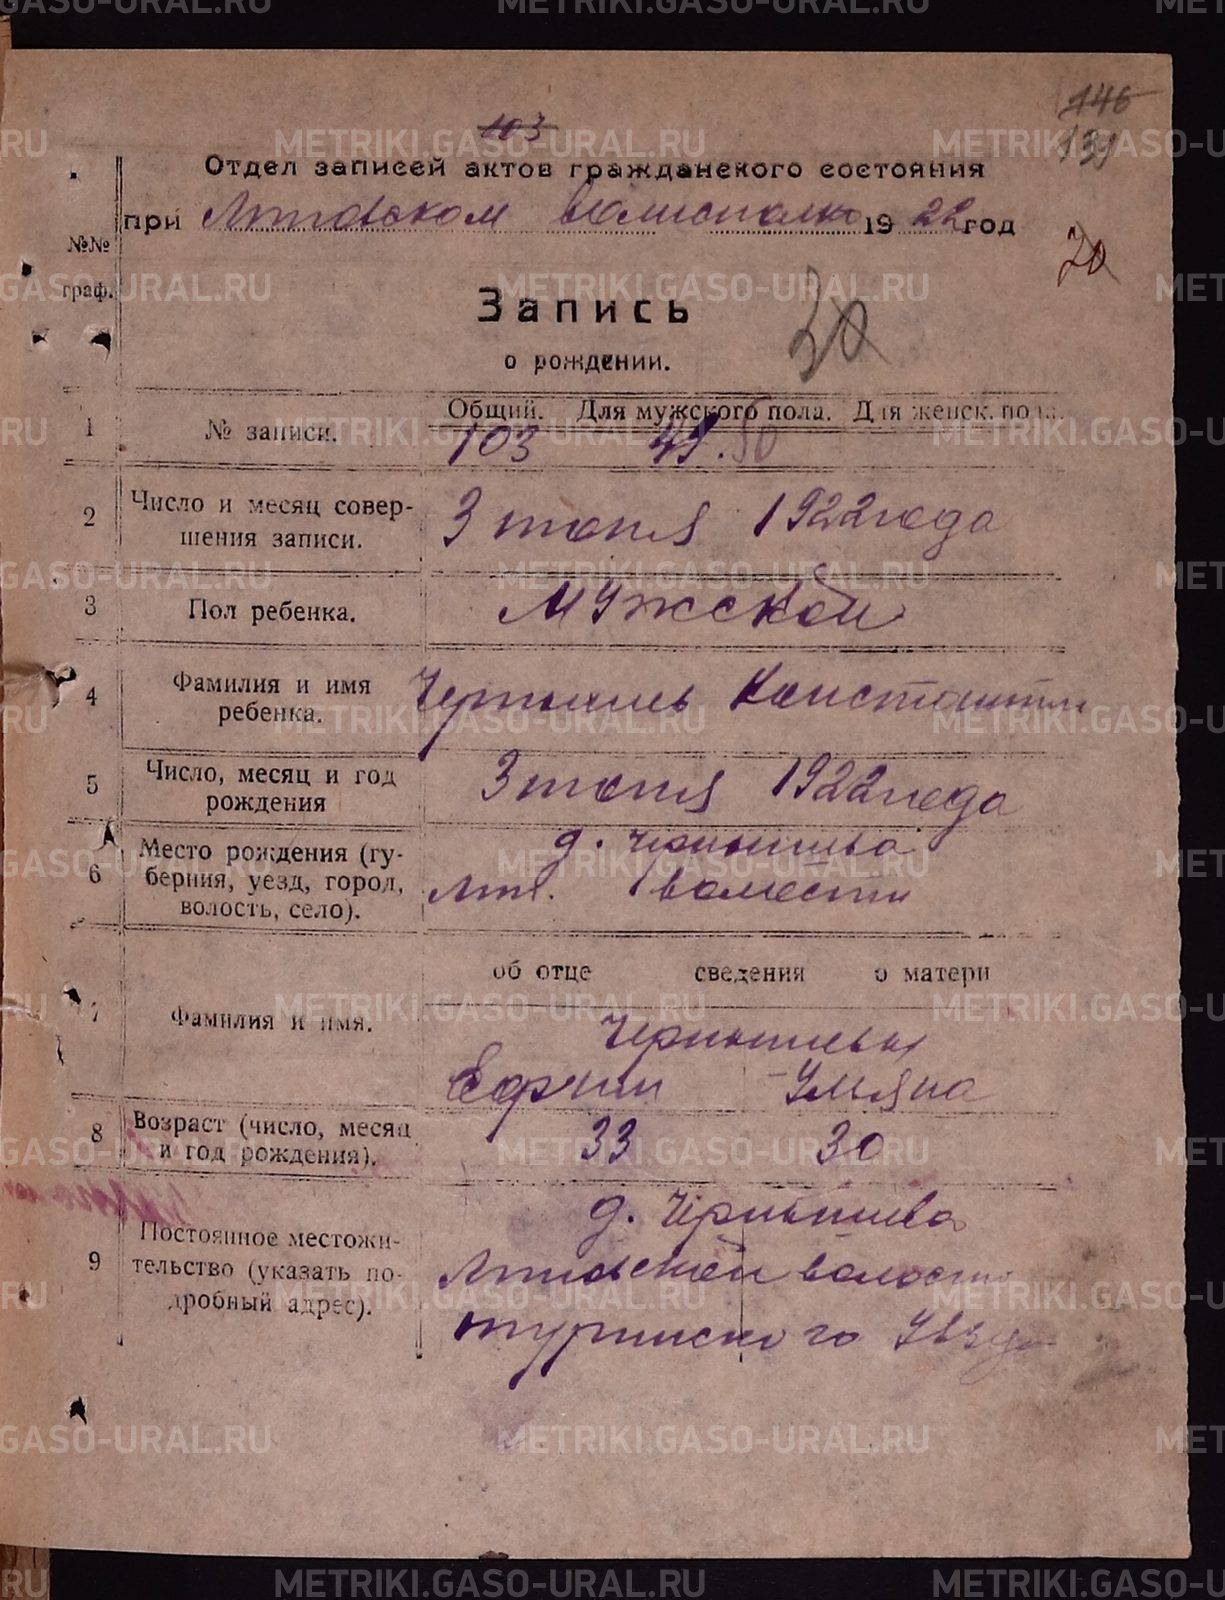 103
146
139
Отдел записей актов гражданского состояния
при Липовском волисполк 1922 год
№№
граф.
20
Запись
о рождении.
Общий. Для мужского пола. Для женск. пола.
1 № записи. 103 49. 50
2 Число и месяц совер-
шения записи.
3 июня 1922 года
3 Пол ребенка. Мужской
4 Фамилия и имя
ребенка.
Чернышев Константин
5 Число, месяц и год
рождения
3 июня 1922 года
6 Место рождения (гу-
берния, уезд, город,
волость, село).
д. Чернышева
волости
об отце сведения о матери
7 Фамилия и имя.
Чернышевы
Ефрим Ульяна
8 Возраст (число, месяц
и год рождения).
33 30
9 Постоянное местожи-
тельство (указать по-
дробный адрес).
д. Чернышева
волости
туринского
METRIKI.GASO-URAL.RU